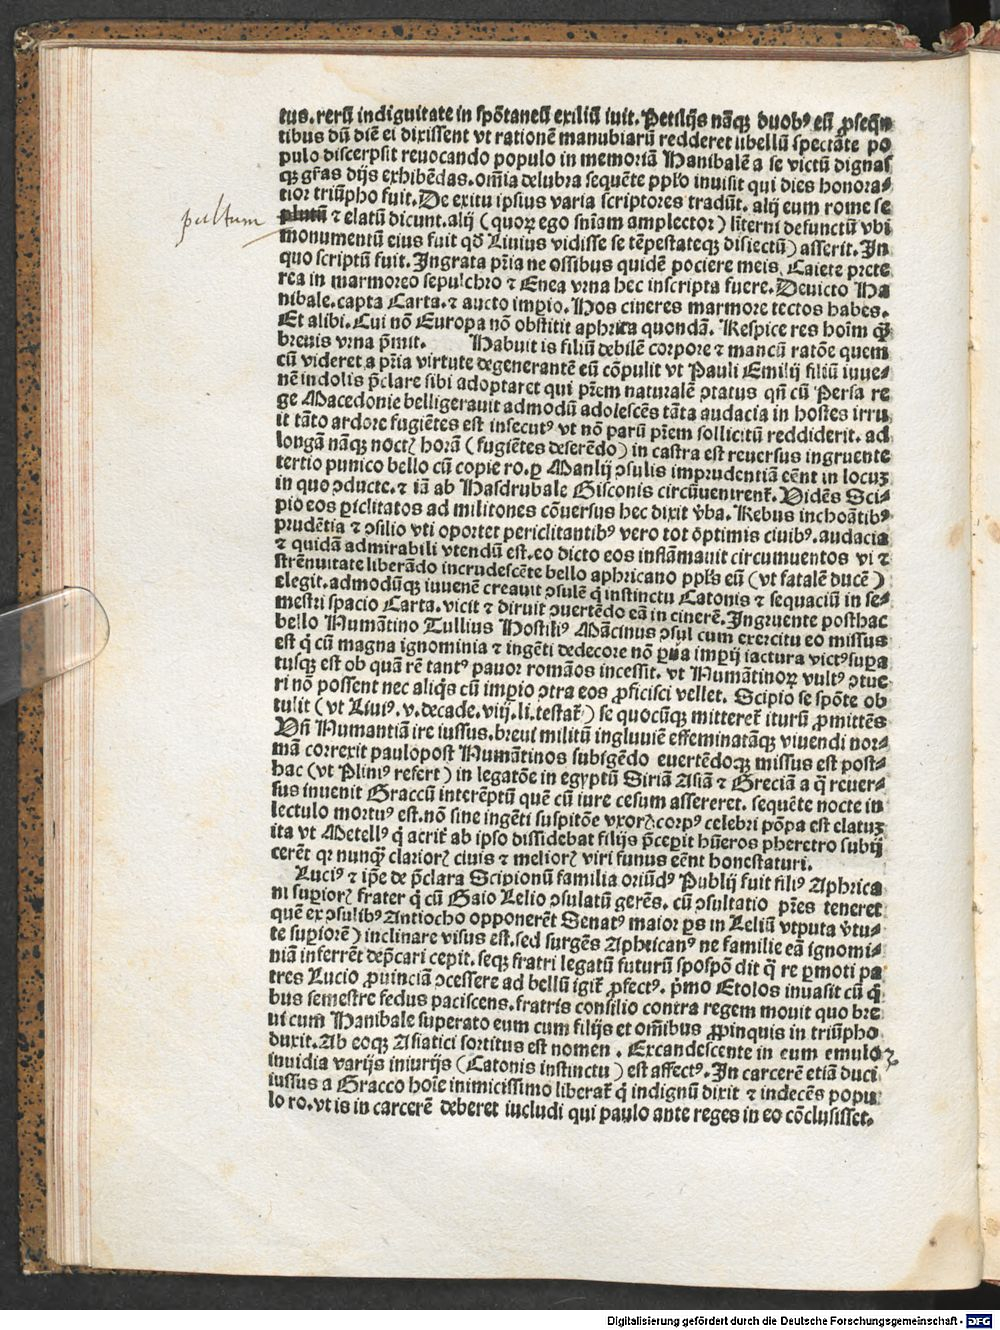 tus. rerū indignitate in spōtaneū exiliū iuit. Petilijs nāq̄ duobꝰ eū ꝓseqn̄
tibus dū diē ei dixissent vt rationē manubiarū redderet libellū spectāte po
pulo discerpsit reuocando populo in memoriā Hanibalē a se victū dignas
qꝫ gr̄as dijs exhibēdas. om̄ia delubra sequēte ppl̄o inuisit qui dies honora⸗
tior triūpho fuit. De exitu ipsius varia scriptores tradūt. alij eum rome se
pultum
plutū ⁊ elatū dicunt. alij (quoꝝ ego sn̄iam amplector) lr̄terni defunctū vbi
monumentū eius fuit qd̄ Liuius vidisse se tēpestateqꝫ disiectū) asserit. In
quo scriptū fuit. Ingrata pr̄ia ne ossibus quidē pociere meis. Caiete prete
rea in marmoreo sepulchro ⁊ Enea vrna hec inscripta fuere. Deuicto Ha
nibale. capta Carta. ⁊ aucto imꝑio. Hos cineres marmore tectos habes.
Et alibi. Cui nō Europa nō obstitit aphrica quondā. Respice res hoīm q̄ꝫ
breuis vrna p̄mit. Habuit is filiū debilē corpore ⁊ mancū ratōe quem
cū videret a pr̄ia virtute degenerantē eū cōpulit vt Pauli Emilij filiū iuue⸗
nē indolis p̄clare sibi adoptaret qui pr̄em naturalē ꝯtatus qn̄ cū Persa re
ge Macedonie belligerauit admodū adolescēs tāta audacia in hostes irru
it tāto ardore fugiētes est insecutꝰ vt nō parū pr̄em sollicitū reddiderit. ad
longā nāqꝫ noctꝭ horā (fugiētes deserēdo) in castra est reuersus ingruente
tertio punico bello cū copie ro. ꝑ Manlij ꝯsulis imprudentiā eēnt in locuꝫ
in quo ꝯducte. ⁊ iā ab Hasdrubale Gisconis circūuentrent̄. Vidēs Sci⸗
pio eos ꝑiclitatos ad militones cōuersus hec dixit v̄ba. Rebus inchoātibꝰ
prudētia ⁊ ꝯsilio vti oportet periclitantibꝰ vero tot ōptimis ciuibꝰ. audacia
⁊ quidā admirabili vtendū est. eo dicto eos inflāmauit circumuentos vi ⁊
strēnuitate liberādo incrudescēte bello aphricano ppl̄s eū (vt fatalē ducē)
elegit. admodūqꝫ iuuenē creauit ꝯsulē q̄ instinctu Catonis ⁊ sequaciū in se⸗
mestri spacio Carta. vicit ⁊ diruit ꝯuertēdo eā in cinerē. Ingruente posthac
bello Humātino Tullius Hostiliꝰ Mācinus ꝯsul cum exercitu eo missus
est q̄ cū magna ignominia ⁊ ingēti dedecore nō ꝑua imꝑij iactura victꝰ suꝑa
tusqꝫ est ob quā rē tantꝰ pauor romāos incessit. vt Humātinoꝝ vultꝰ ꝯtue
ri nō possent nec aliq̄s cū imꝑio ꝯtra eos ꝓficisci vellet. Scipio se spōte ob
tulit (vt Liuiꝰ. v. decade. viij. li. testat̄) se quocūqꝫ mitteret̄ iturū ꝓmittēs
Vn̄ Humantiā ire iussus. breui militū ingluuiē effeminatāqꝫ viuendi nor⸗
mā correxit paulopost Humātinos subigēdo euertēdoqꝫ missus est post⸗
hac (vt Pliniꝰ refert) in legatōe in egyptū Siriā Asiā ⁊ Greciā a q̄ reuer⸗
sus inuenit Graccū interēptū quē cū iure cesum assereret. sequēte nocte in
lectulo mortuꝰ est. nō sine ingēti suspitōe vxorꝭ. corpꝰ celebri pōpa est elatuꝫ
ita vt Metellꝰ q̄ acrit̄ ab ipso dissidebat filijs p̄cepit hūeros pheretro subij
cerēt qꝛ nunq̄ꝫ clariorꝭ ciuis ⁊ meliorꝭ viri funus eēnt honestaturi.
Luciꝰ ⁊ ip̄e de p̄clara Scipionū familia oriūdꝰ Publij fuit filiꝰ Aphrica
ni suꝑiorꝭ frater q̄ cū Gaio Lelio ꝯsulatū gerēs. cū ꝯsultatio pr̄es teneret
quē ex ꝯsulibꝰ Antiocho opponerēt Senatꝰ maior ꝑs in Leliū vtputa v̄tu⸗
te suꝑiorē) inclinare visus est. sed surgēs Aphricanꝰ ne familie eā ignomi⸗
niā inferrēt dep̄cari cepit. seqꝫ fratri legatū futurū spospōdit q̄ re ꝑmoti pa
tres Lucio ꝓuinciā ꝯcessere ad bellū igit̄ ꝓfectꝰ. p̄mo Etolos inuasit cū q̄
bus semestre fedus paciscens. fratris consilio contra regem mouit quo bre
ui cum Hanibale superato eum cum filijs et om̄ibus ꝓpinquis in triūpho
duxit. Ab eoqꝫ Asiatici sortitus est nomen. Excandescente in eum emuloꝝ
inuidia varijs iniurijs (Catonis instinctu) est affectꝰ. In carcerē etiā duci
iussus a Gracco hoīe inimicissimo liberat̄ q̄ indignū dixit ⁊ indecēs popu
lo ro. vt is in carcerē deberet includi qui paulo ante reges in eo cōclusisset.
Digitalisierung gefördert durch die Deutsche Forschungsgemeinschaft - DFG